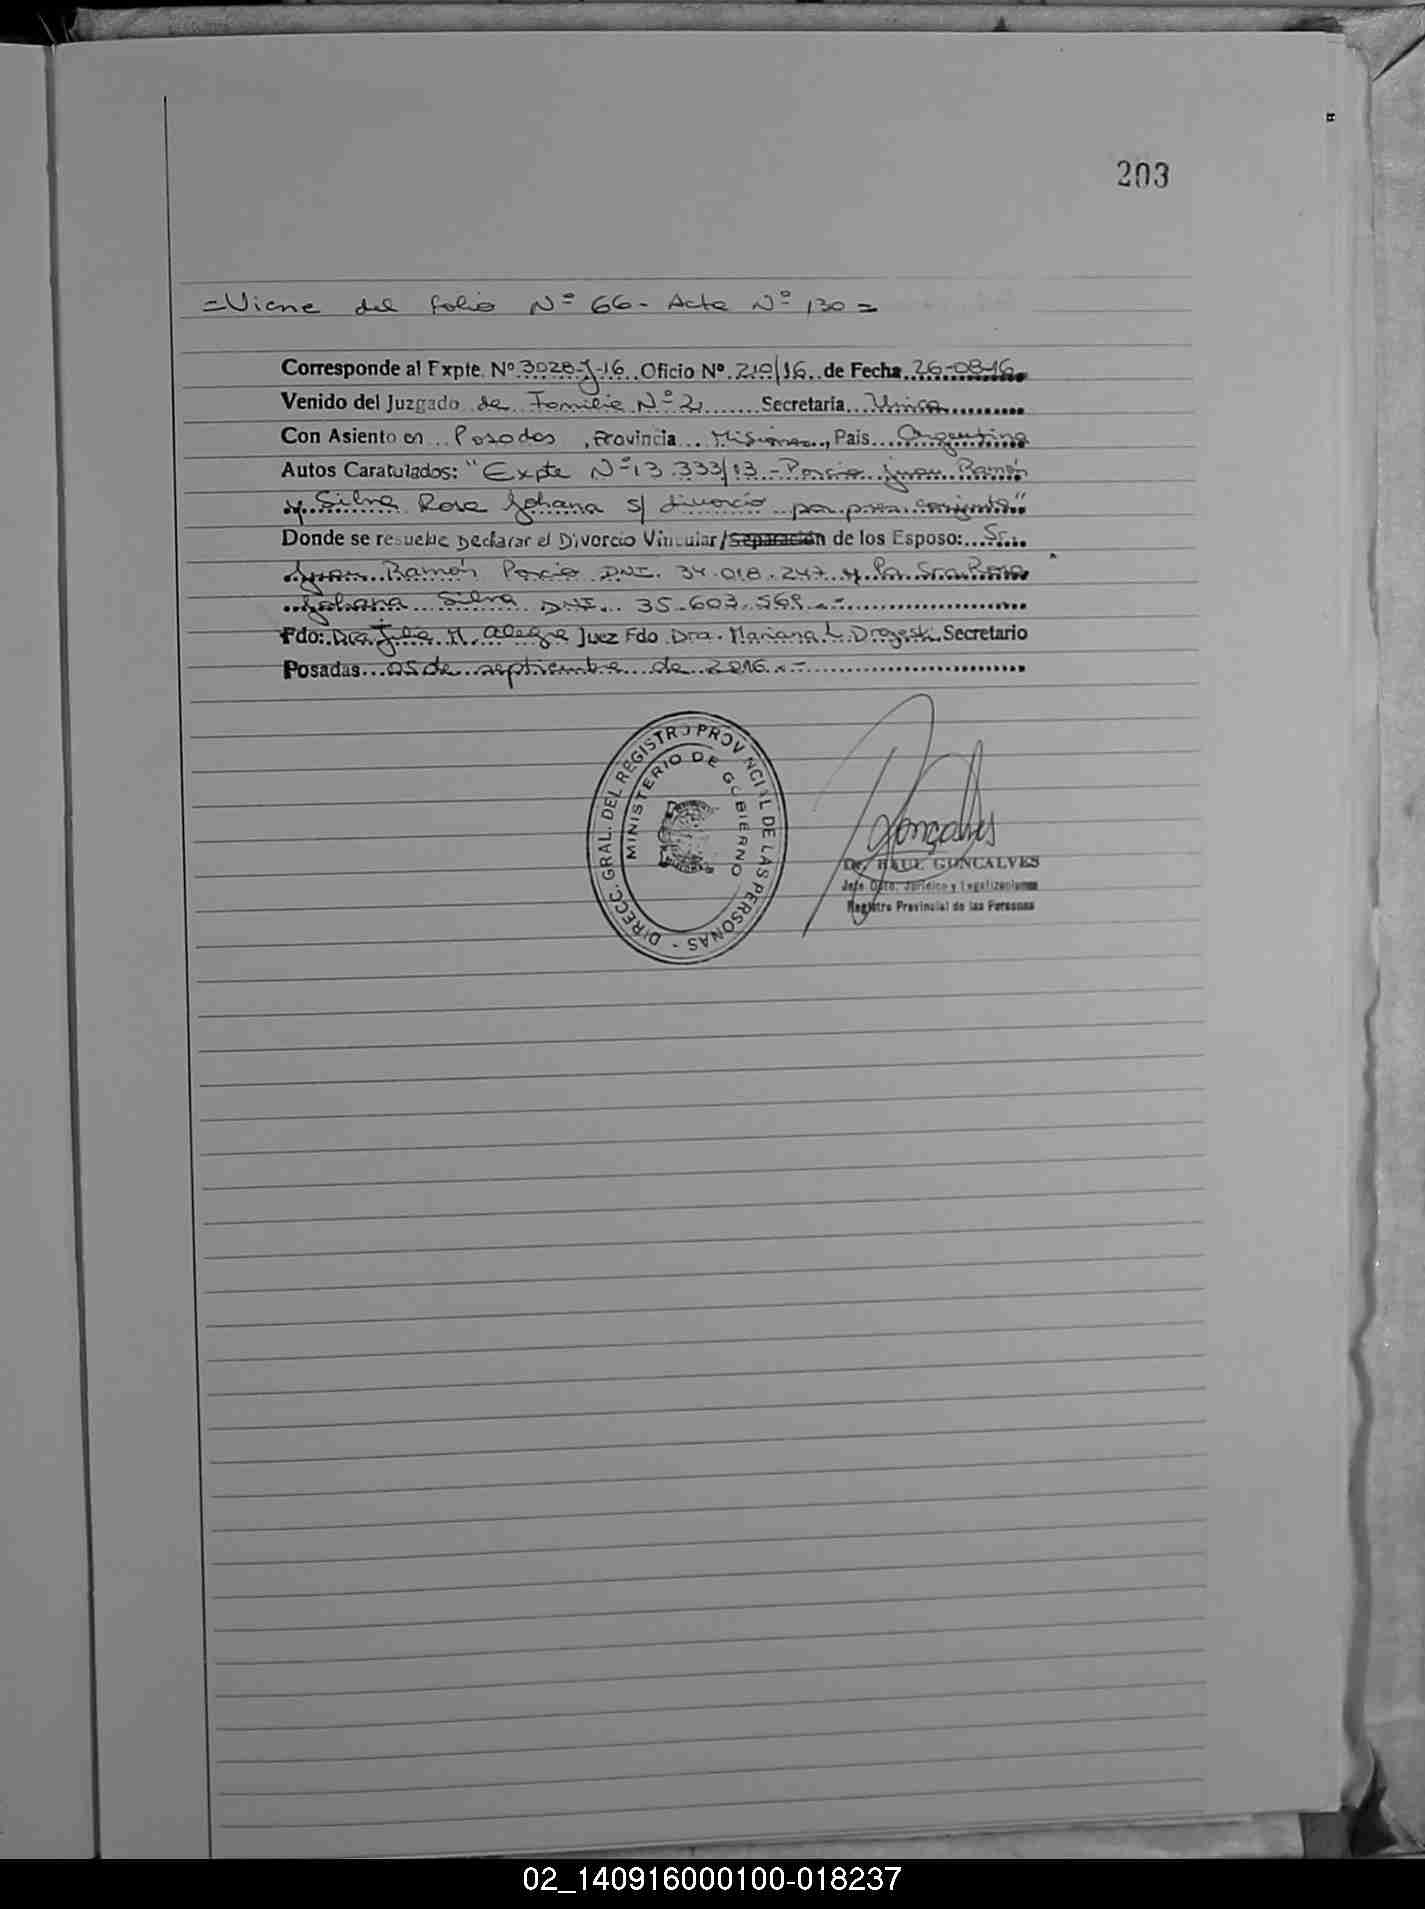 203
=Viene del folio Nº 66 - Acta Nº 130=
Corresponde al Expte. Nº 3028-J-16 Oficio Nº 210/16 de Fecha 26-08-16
Venido del Juzgado de Familia Nº 2, Secretaria Unica
Con Asiento en Posadas, Provincia Misiones, País Argentina
Autos Caratulados: "Expte Nº 13 333/13 - Juan Ramón
y Silva Rosa Johana s/ divorcio por pres. conjunta"
Donde se resuelve Declarar el Divorcio Vincular/Separación de los Esposo: Sr.
Juan Ramón DNI. 34.018.247 y la Sra Rosa
Johana Silva DNI. 35.603.569.-
Fdo: Dra Julia M. Alegre Juez Fdo Dra. Mariana L. Secretario
Posadas 05 de septiembre de 2016.-
DIRECC. GRAL. DEL REGISTRO PROVINCIAL DE LAS PERSONAS -
MINISTERIO DE GOBIERNO
Gonçalves
Dr. RAUL GONCALVES
Jefe Dpto. Jurídico y Legalizaciones
Registro Provincial de las Personas
02_140916000100-018237